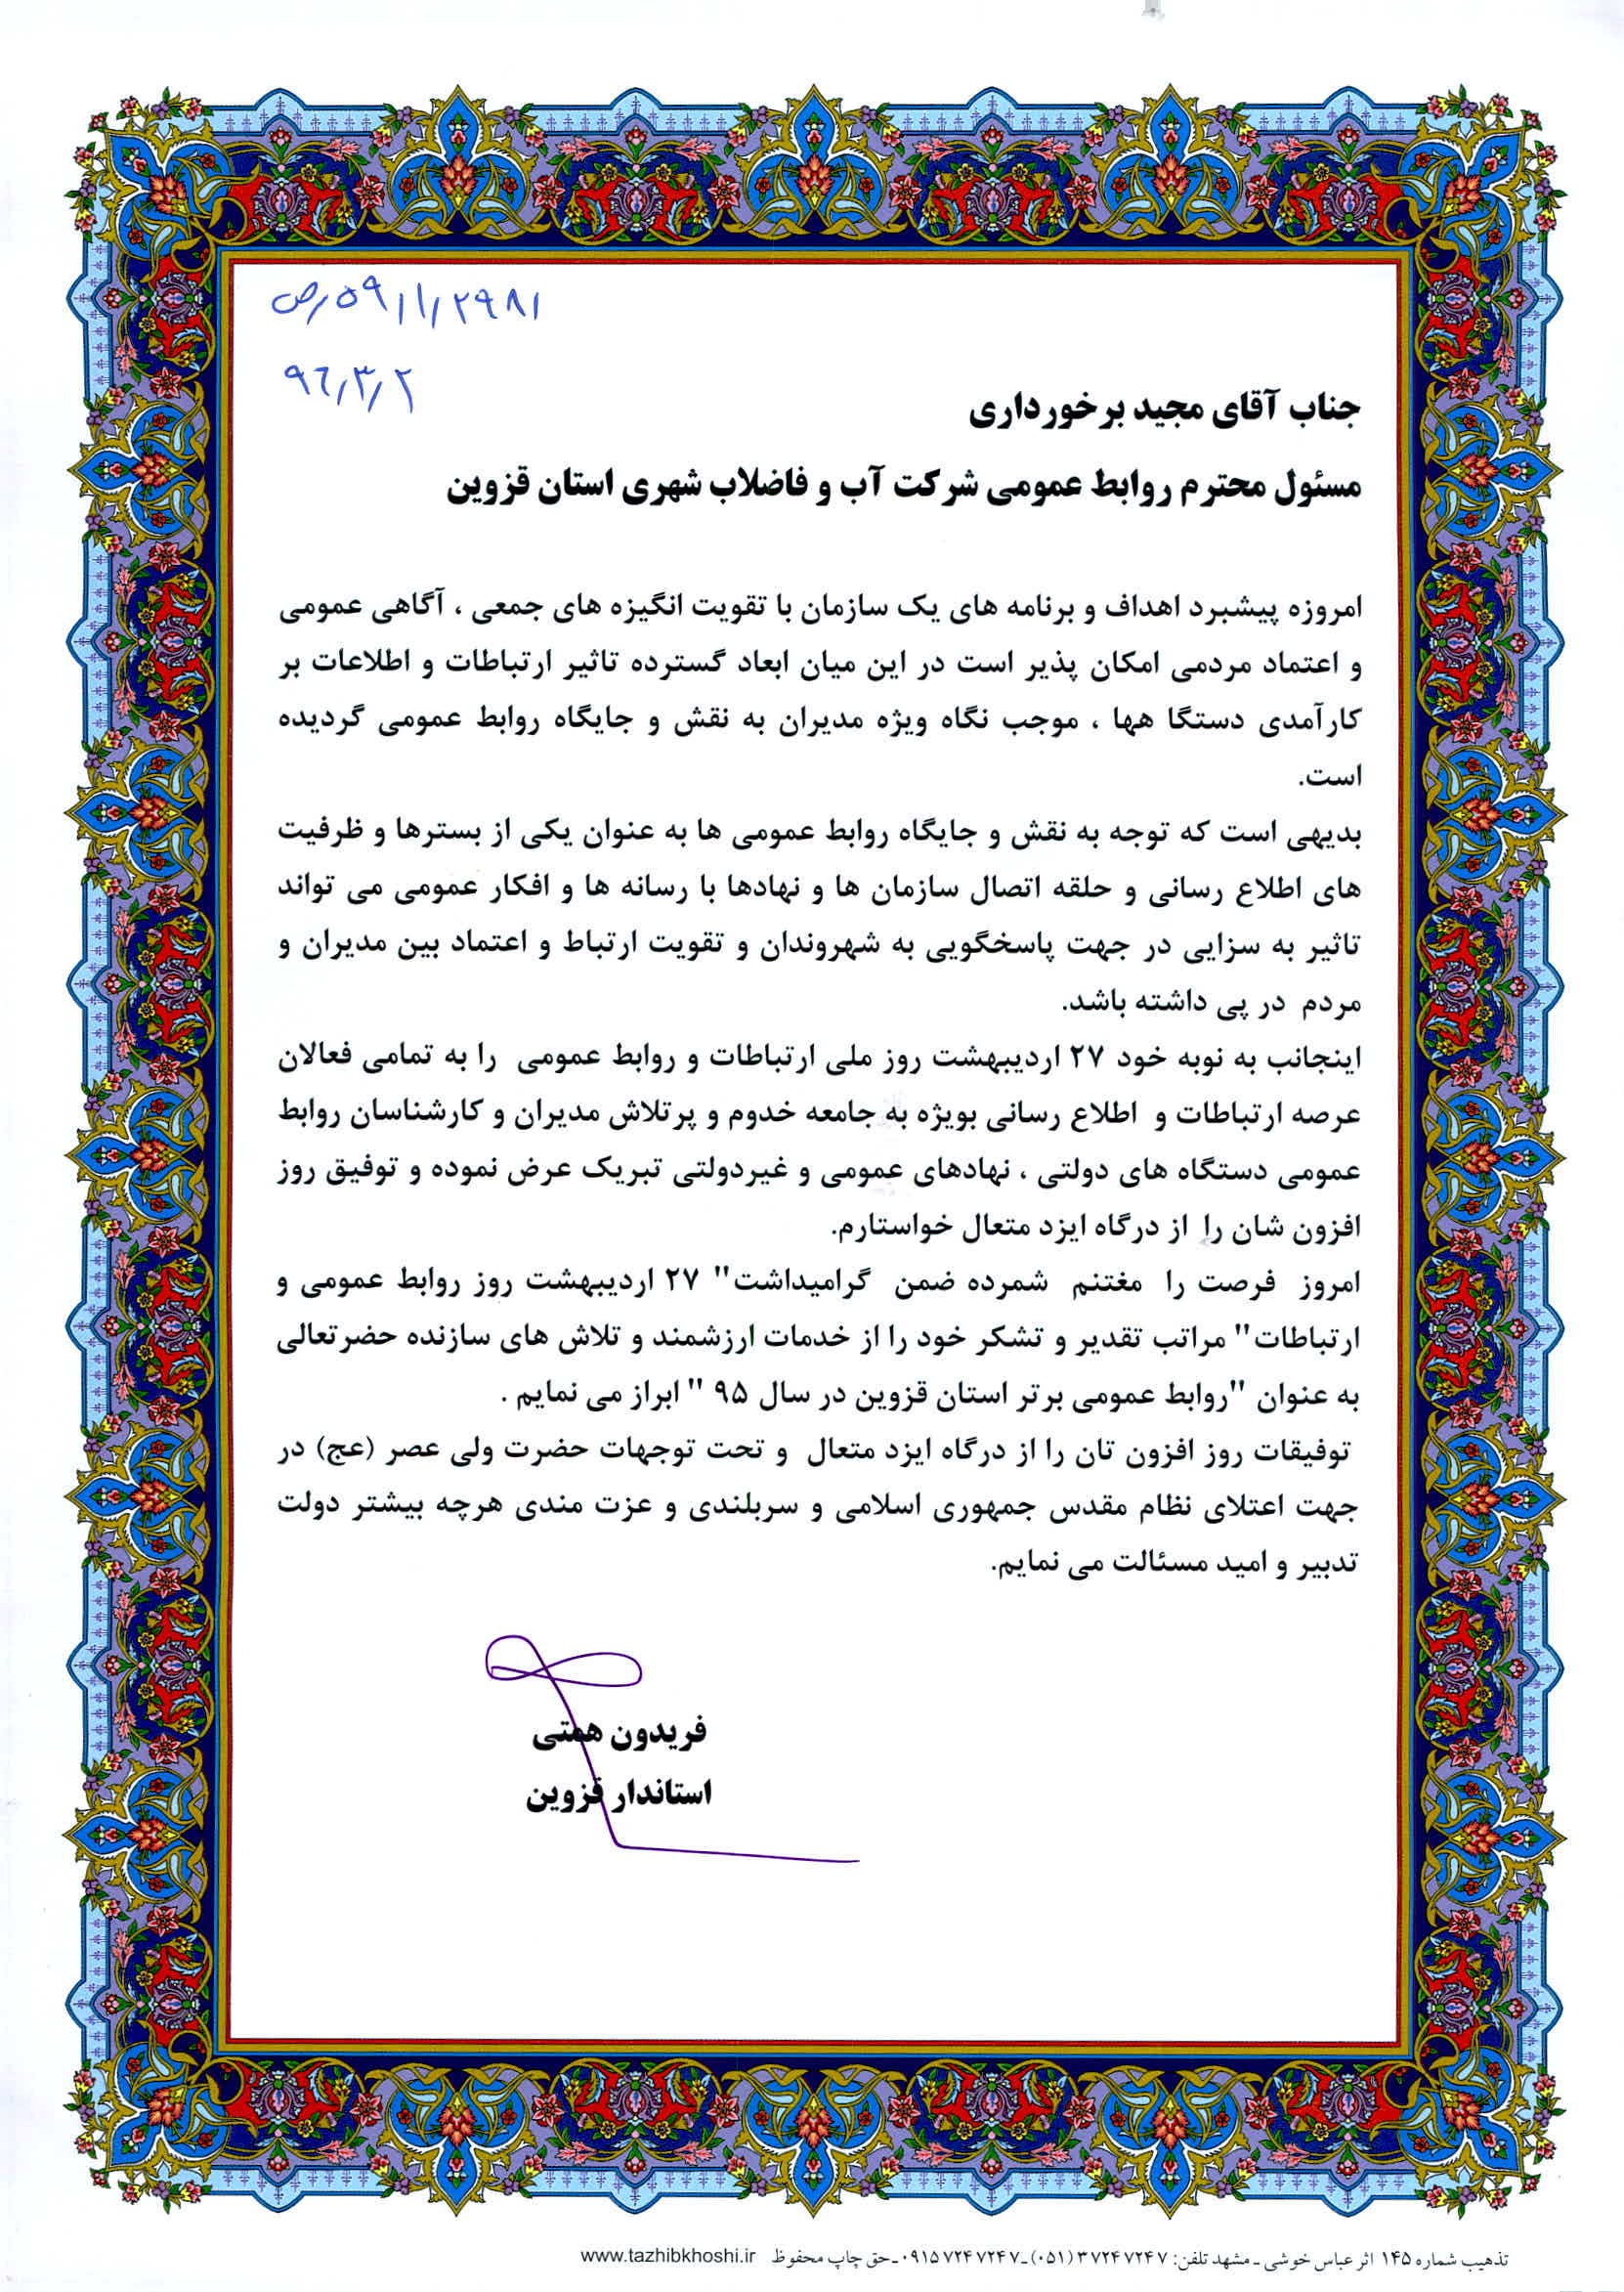 ص/۵۹/۱/۲۹۸۱
۹۶/۳/۲
جناب آقای مجید برخورداری
مسئول محترم روابط عمومی شرکت آب و فاضلاب شهری استان قزوین
امروزه پیشبرد اهداف و برنامه های یک سازمان با تقویت انگیزه های جمعی ، آگاهی عمومی
و اعتماد مردمی امکان پذیر است در این میان ابعاد گسترده تاثیر ارتباطات و اطلاعات بر
کارآمدی دستگا هها ، موجب نگاه ویژه مدیران به نقش و جایگاه روابط عمومی گردیده
است.
بدیهی است که توجه به نقش و جایگاه روابط عمومی ها به عنوان یکی از بسترها و ظرفیت
های اطلاع رسانی و حلقه اتصال سازمان ها و نهادها با رسانه ها و افکار عمومی می تواند
تاثیر به سزایی در جهت پاسخگویی به شهروندان و تقویت ارتباط و اعتماد بین مدیران و
مردم در پی داشته باشد.
اینجانب به نوبه خود ۲۷ اردیبهشت روز ملی ارتباطات و روابط عمومی را به تمامی فعالان
عرصه ارتباطات و اطلاع رسانی بویژه به جامعه خدوم و پرتلاش مدیران و کارشناسان روابط
عمومی دستگاه های دولتی ، نهادهای عمومی و غیردولتی تبریک عرض نموده و توفیق روز
افزون شان را از درگاه ایزد متعال خواستارم.
امروز فرصت را مغتنم شمرده ضمن گرامیداشت" ۲۷ اردیبهشت روز روابط عمومی و
ارتباطات" مراتب تقدیر و تشکر خود را از خدمات ارزشمند و تلاش های سازنده حضرتعالی
به عنوان "روابط عمومی برتر استان قزوین در سال ۹۵ " ابراز می نمایم .
توفیقات روز افزون تان را از درگاه ایزد متعال و تحت توجهات حضرت ولی عصر (عج) در
جهت اعتلای نظام مقدس جمهوری اسلامی و سربلندی و عزت مندی هرچه بیشتر دولت
تدبیر و امید مسئالت می نمایم.
فریدون همتی
استاندار قزوین
تذهیب شماره ۱۴۵ اثر عباس خوشی ـ مشهد تلفن: ۳۷۲۴۷۲۴۷ (۰۵۱) ـ ۰۹۱۵۷۲۴۷۲۴۷ ـ حق چاپ محفوظ www.tazhibkhoshi.ir